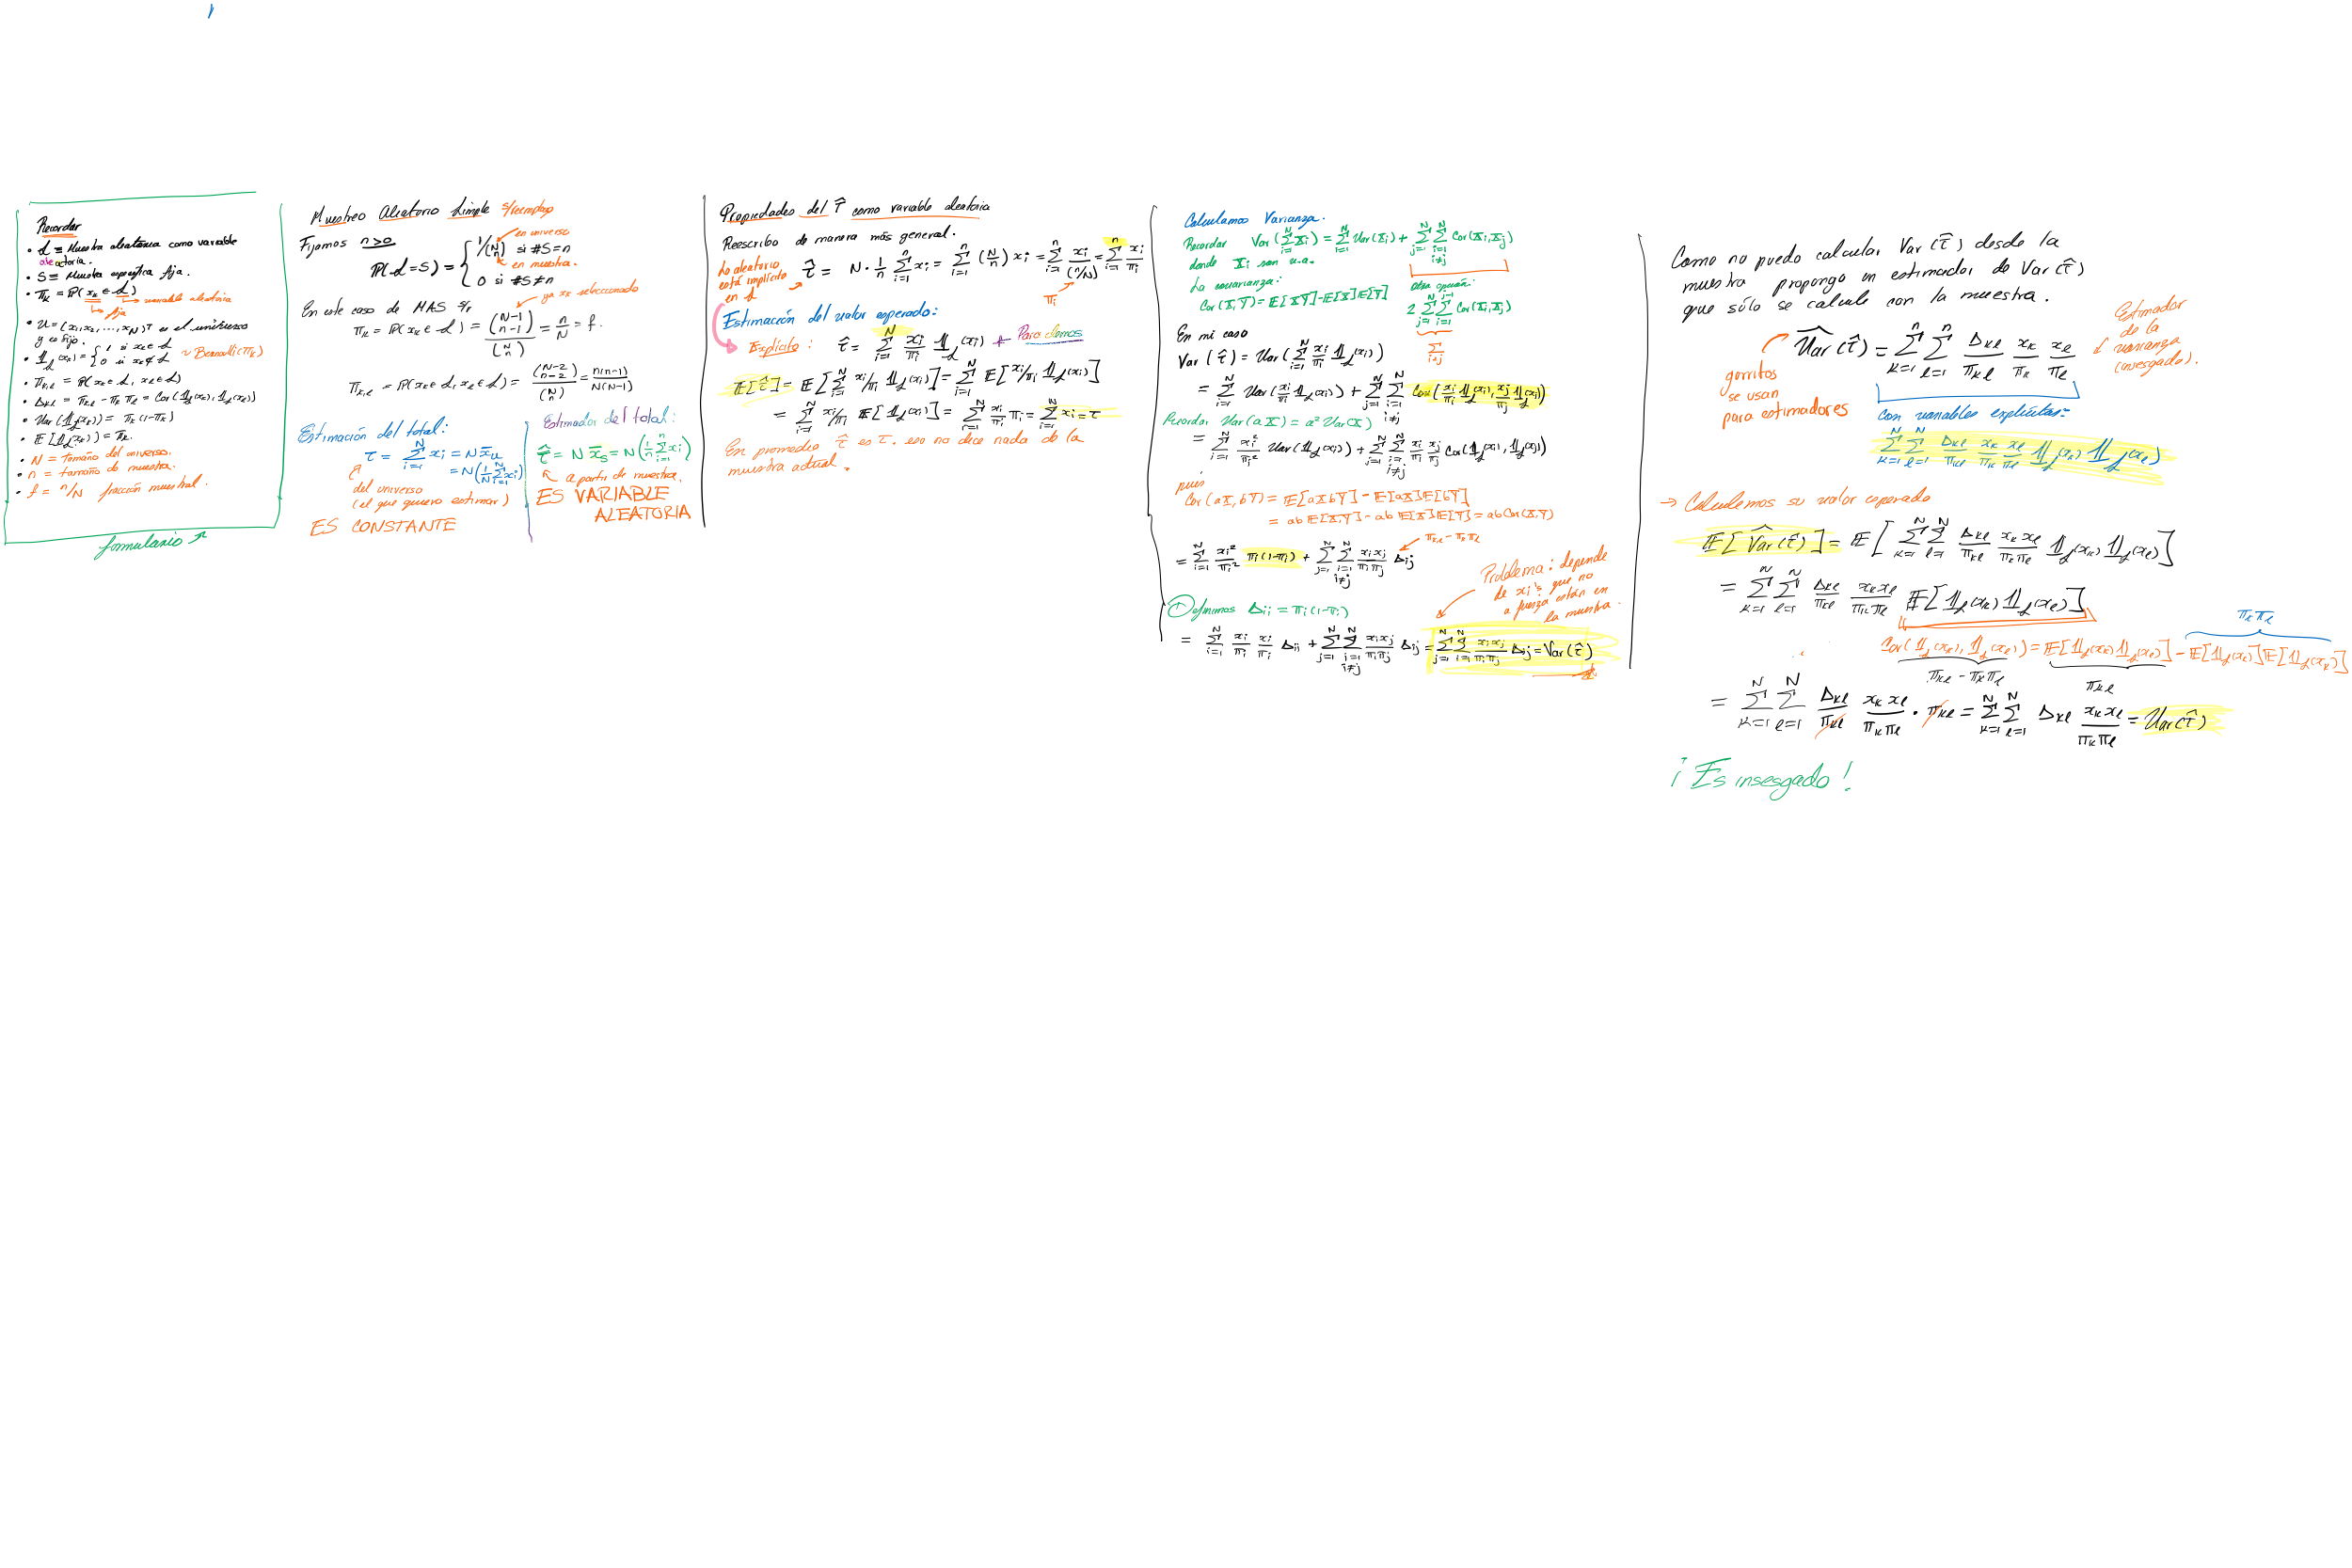 Recordar
• 𝒮 ≡ Muestra aleatoria como variable
aleatoria.
• S ≡ Muestra específica fija.
• π_k = ℙ(x_k ∈ 𝒮)
→ variable aleatoria
↳ fija
• U = (x₁, x₂, ..., x_N)ᵀ es el universo
y es fijo.
• 𝟙_𝒮(x_k) = { 1 si x_k ∈ 𝒮
0 si x_k ∉ 𝒮 ~ Bernoulli(π_k)
• π_{k,l} = ℙ(x_k ∈ 𝒮, x_l ∈ 𝒮)
• Δ_kl = π_kl - π_k π_l = Cov(𝟙_𝒮(x_k), 𝟙_𝒮(x_l))
• Var(𝟙_𝒮(x_k)) = π_k(1-π_k)
• 𝔼[𝟙_𝒮(x_k)] = π_k.
• N = tamaño del universo.
• n = tamaño de muestra.
• f = n/N fracción muestral.
formulario ↗
Muestreo Aleatorio Simple s/reemplazo
Fijamos n>0
ℙ(𝒮=S) = { 1/(N n) si #S=n
0 si #S≠n
en universo
en muestra.
En este caso de MAS s/r
ya x_k seleccionado
π_k = ℙ(x_k ∈ 𝒮) = (N-1 n-1)/(N n) = n/N = f.
π_{k,l} = ℙ(x_k ∈ 𝒮, x_l ∈ 𝒮) = (N-2 n-2)/(N n) = n(n-1)/N(N-1)
Estimación del total:
τ = Σ_{i=1}^N x_i = N x̄_U
= N(1/N Σ_{i=1}^N x_i)
del universo
(el que quiero estimar)
ES CONSTANTE
Estimador del total:
τ̂ = N x̄_S = N(1/n Σ_{i=1}^n x_i)
↖ a partir de muestra.
ES VARIABLE
ALEATORIA
Propiedades del τ̂ como variable aleatoria
Reescribo de manera más general.
Lo aleatorio
está implícito
en 𝒮
τ̂ = N · 1/n Σ_{i=1}^n x_i = Σ_{i=1}^n (N/n) x_i = Σ_{i=1}^n x_i/(n/N) = Σ_{i=1}^n x_i/π_i
π_i
Estimación del valor esperado:
Explícito: τ̂ = Σ_{i=1}^N x_i/π_i 𝟙_𝒮(x_i) ← Para demos
𝔼[τ̂] = 𝔼[Σ_{i=1}^N x_i/π_i 𝟙_𝒮(x_i)] = Σ_{i=1}^N 𝔼[x_i/π_i 𝟙_𝒮(x_i)]
= Σ_{i=1}^N x_i/π_i 𝔼[𝟙_𝒮(x_i)] = Σ_{i=1}^N x_i/π_i π_i = Σ_{i=1}^N x_i = τ
En promedio τ̂ es τ. eso no dice nada de la
muestra actual.
Calculamos Varianza.
Recordar Var(Σ_{i=1}^N X_i) = Σ_{i=1}^N Var(X_i) + Σ_{j=1}^N Σ_{i=1, i≠j}^N Cov(X_i, X_j)
donde X_i son v.a.
La covarianza:
Cov(X,Y) = 𝔼[XY] - 𝔼[X]𝔼[Y]
otra opción:
2 Σ_{j=1}^N Σ_{i=1}^{j-1} Cov(X_i, X_j)
Σ_{i<j}
En mi caso
Var(τ̂) = Var(Σ_{i=1}^N x_i/π_i 𝟙_𝒮(x_i))
= Σ_{i=1}^N Var(x_i/π_i 𝟙_𝒮(x_i)) + Σ_{j=1}^N Σ_{i=1, i≠j}^N Cov(x_i/π_i 𝟙_𝒮(x_i), x_j/π_j 𝟙_𝒮(x_j))
Recordar Var(aX) = a² Var(X)
= Σ_{i=1}^N x_i²/π_i² Var(𝟙_𝒮(x_i)) + Σ_{j=1}^N Σ_{i=1, i≠j}^N x_i/π_i x_j/π_j Cov(𝟙_𝒮(x_i), 𝟙_𝒮(x_j))
pues
Cov(aX, bY) = 𝔼[aXbY] - 𝔼[aX]𝔼[bY]
= ab 𝔼[X,Y] - ab 𝔼[X]𝔼[Y] = ab Cov(X,Y)
π_kl - π_k π_l
= Σ_{i=1}^N x_i²/π_i² π_i(1-π_i) + Σ_{j=1}^N Σ_{i=1, i≠j}^N x_i x_j/π_i π_j Δ_ij
Problema: depende
de x_i's que no
a fuerza están en
la muestra.
Definimos Δ_ii = π_i(1-π_i)
= Σ_{i=1}^N x_i/π_i x_i/π_i Δ_ii + Σ_{j=1}^N Σ_{i=1, i≠j}^N x_i x_j/π_i π_j Δ_ij = Σ_{j=1}^N Σ_{i=1}^N x_i x_j/π_i π_j Δ_ij = Var(τ̂)
Como no puedo calcular Var(τ̂) desde la
muestra propongo un estimador de Var(τ̂)
que sólo se calcule con la muestra.
V̂ar(τ̂) = Σ_{k=1}^n Σ_{l=1}^n Δ_kl/π_kl x_k/π_k x_l/π_l
Estimador
de la
varianza
(insesgado).
gorritos
se usan
para estimadores
con variables explícitas:
Σ_{k=1}^N Σ_{l=1}^N Δ_kl/π_kl x_k/π_k x_l/π_l 𝟙_𝒮(x_k) 𝟙_𝒮(x_l)
→ Calculemos su valor esperado
𝔼[V̂ar(τ̂)] = 𝔼[Σ_{k=1}^N Σ_{l=1}^N Δ_kl/π_kl x_k x_l/π_k π_l 𝟙_𝒮(x_k) 𝟙_𝒮(x_l)]
= Σ_{k=1}^N Σ_{l=1}^N Δ_kl/π_kl x_k x_l/π_k π_l 𝔼[𝟙_𝒮(x_k) 𝟙_𝒮(x_l)]
π_k π_l
Cov(𝟙_𝒮(x_k), 𝟙_𝒮(x_l)) = 𝔼[𝟙_𝒮(x_k) 𝟙_𝒮(x_l)] - 𝔼[𝟙_𝒮(x_l)]𝔼[𝟙_𝒮(x_k)]
π_kl - π_k π_l
π_kl
= Σ_{k=1}^N Σ_{l=1}^N Δ_kl/π_kl x_k x_l/π_k π_l · π_kl = Σ_{k=1}^N Σ_{l=1}^N Δ_kl x_k x_l/π_k π_l = Var(τ̂)
¡Es insesgado!